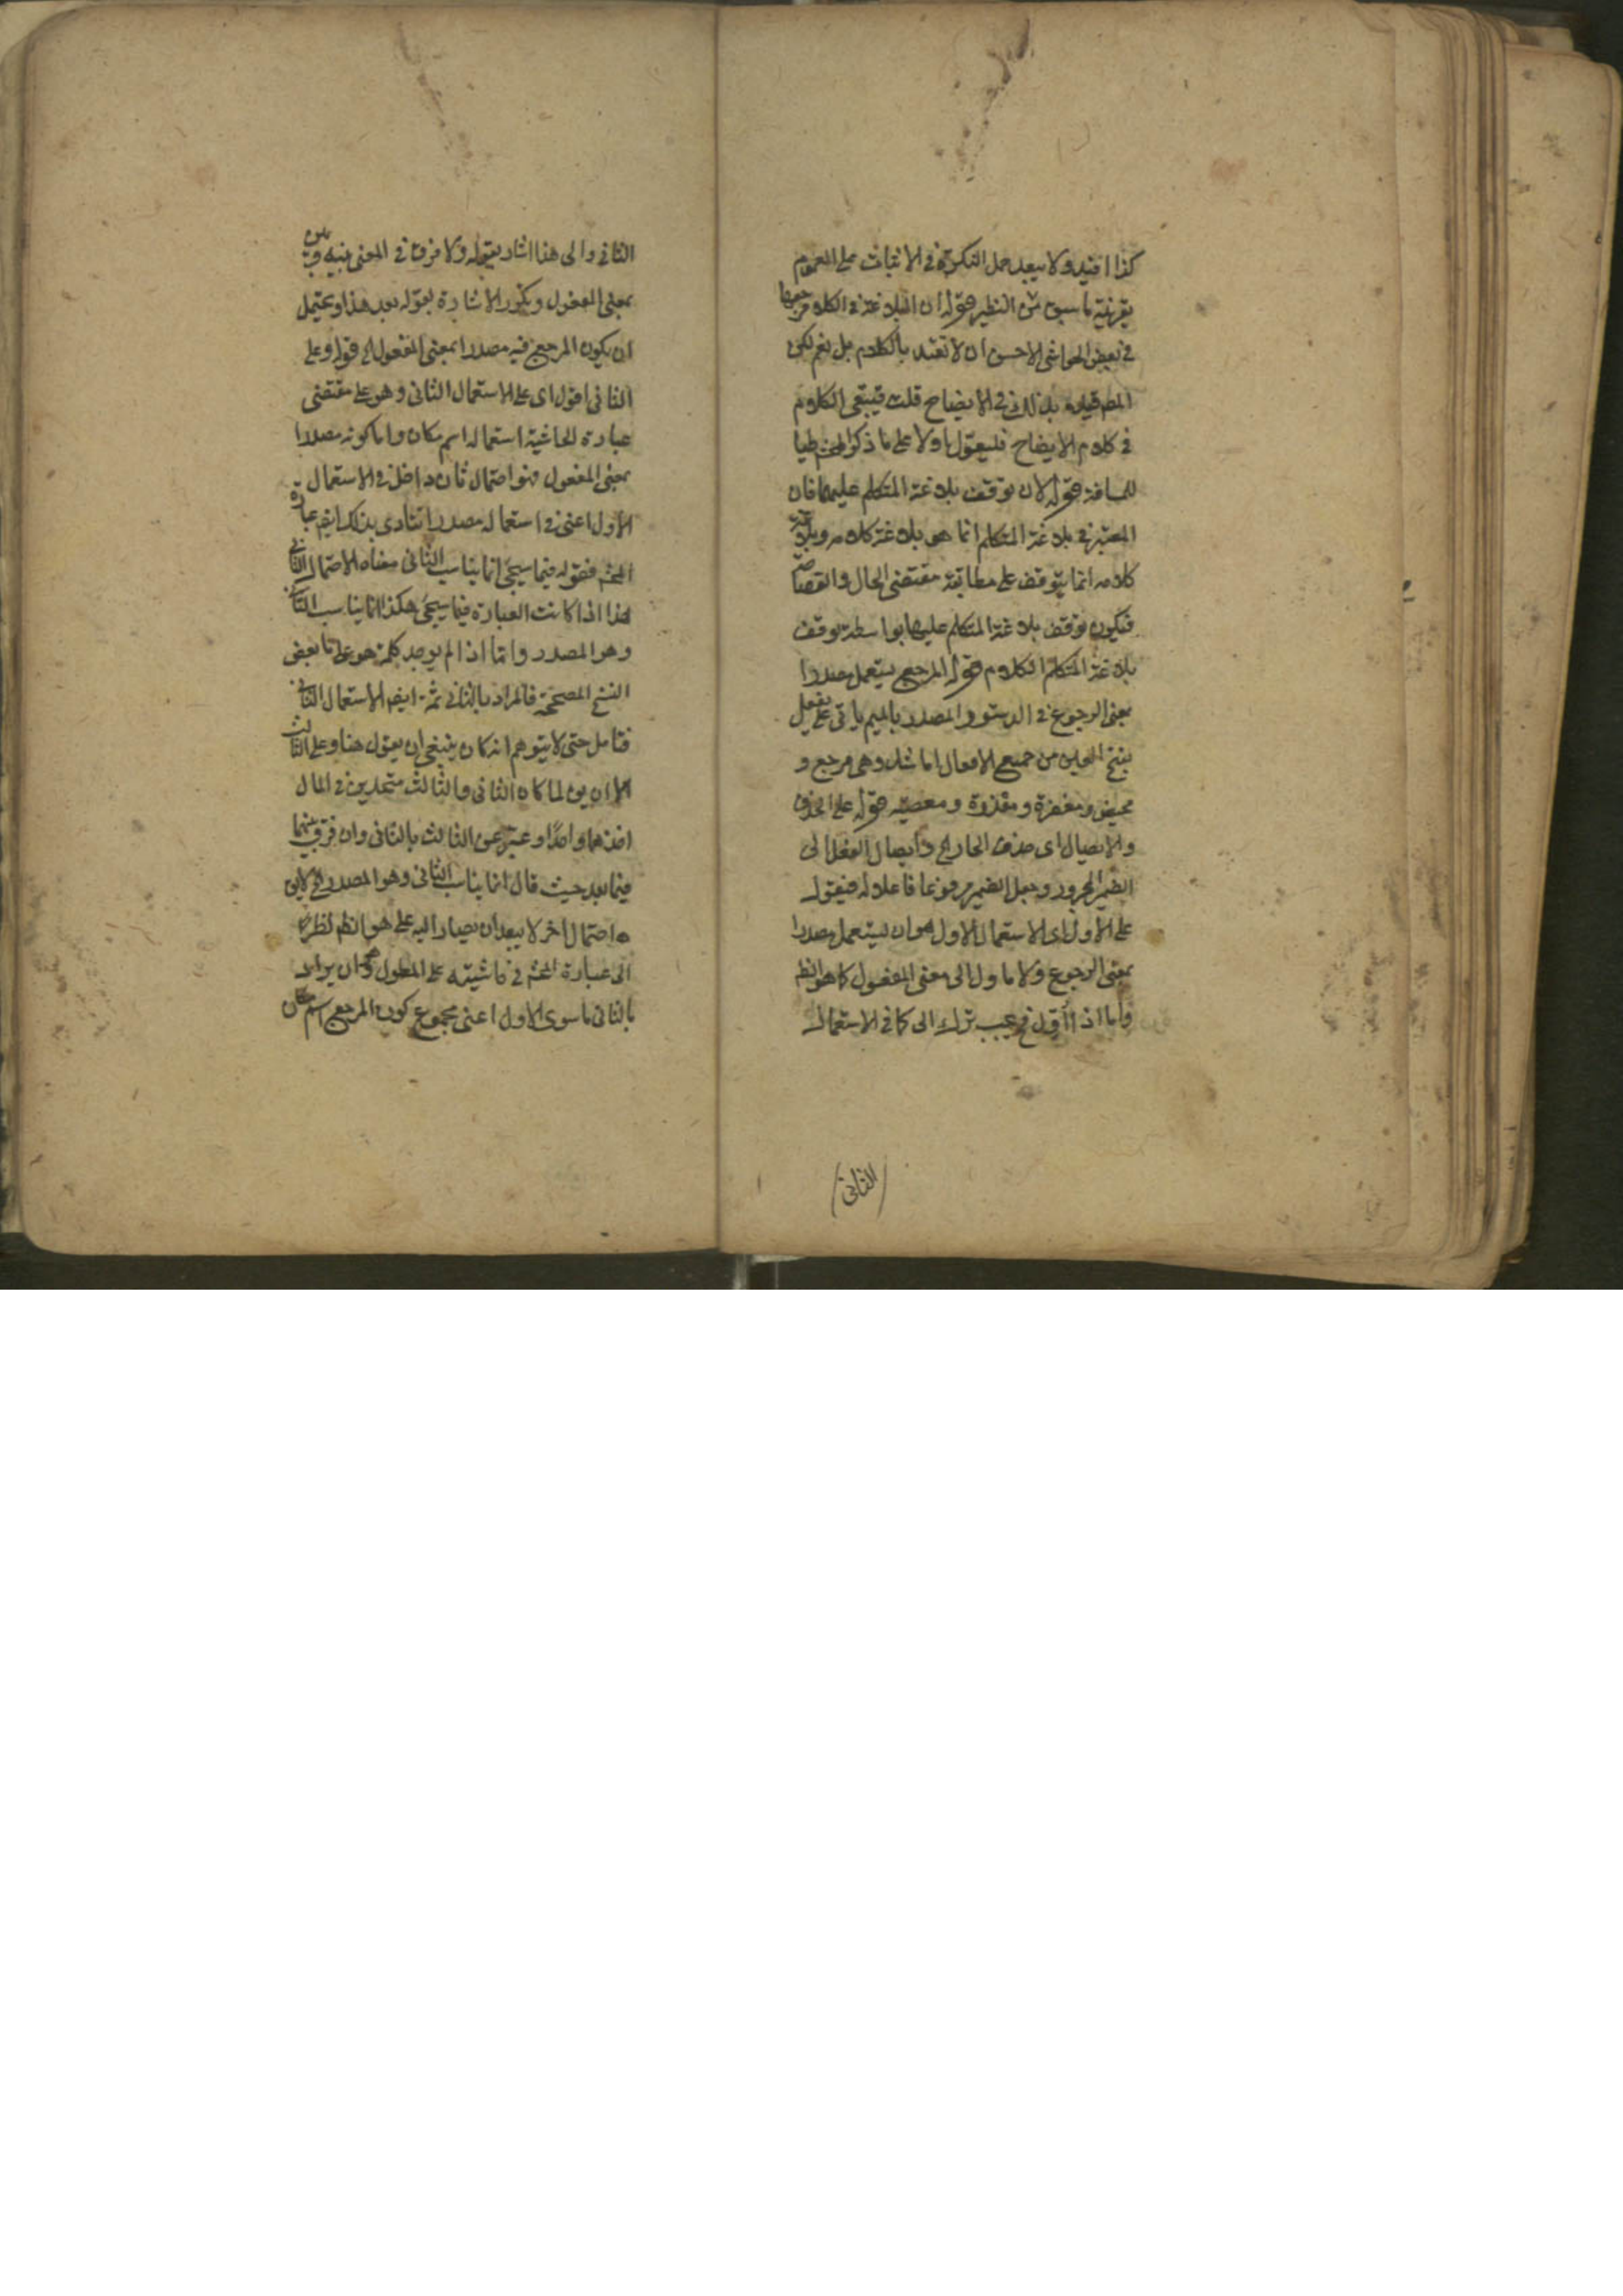 كذا افيد ولا يبعد حمل النكرة في الاثبات على العموم
بقرينة ما سبق من النظير قوله ان البلاغة في الكلام مرجعها
في بعض الحواشي الاحسن ان لا تقيد بالكلام بل يعم لكن
المص قيده بذلك في الايضاح قلت فيبقى الكلام
في كلام الايضاح فليعول اولا على ما ذكر المحشي طيا
للمسافة قوله لان توقف بلاغة المتكلم عليهما فان
المعتبر في بلاغة المتكلم انما هي بلاغة كلامه وبلاغة
كلامه انما يتوقف على مطابقة مقتضى الحال والفصاحة
فيكون توقف بلاغة المتكلم عليهما بواسطة توقف
بلاغة المتكلم الكلام قوله المرجع يستعمل مصدرا
بمعنى الرجوع في الدستور والمصدر بالميم ياتي على مفعل
بفتح العين من جميع الافعال اما شذ وهي مرجع و
محيض ومغفرة ومقدرة ومعصية قوله على الحذف
والايصال اى حذف الجار اى وايصال الفعل الى
الضمير المجرور وجعل الضمير مرفوعا فاعلا له فيقول
على الاول اى الاستعمال الاول هو ان يستعمل مصدرا
بمعنى الرجوع ولا ماول الى معنى المفعول كما هو الظ
واما اذا أول فيجب ترك الى كما في الاستعمال
الثاني
الثاني والى هذا اشار بقوله ولا فرق في المعنى بينه وبين
بمعنى المفعول ويكون الاشارة بقوله بعد هذا ويحتمل
ان يكون المرجع فيه مصدرا بمعنى المفعول الخ قوله وعلى
الثاني اقول اى على الاستعمال الثاني وهو على مقتضى
عبارة الحاشية استعماله اسم مكان واما كونه مصدرا
بمعنى المفعول فهو احتمال ثان داخل في الاستعمال
الاول اعنى في استعماله مصدرا تنادى بذلك ايض عبارة
المحش فقوله فيما سيجئ انما يناسب الثاني معناه الاحتمال الثاني
هذا اذا كانت العبارة فيما سيجئ هكذا انما يناسب الثاني
وهو المصدر واما اذا لم يوجد كلمة هو على ما بعض
النسخ المصححة فالمراد بالثاني ثمة ايض الاستعمال الثاني
فتامل حتى لا يتوهم انه كان ينبغي ان يقول هنا وعلى الثالث
الا ان يق لما كان الثاني والثالث متحدين في المال
اخذهما واحدا وعبر عن الثالث بالثاني وان فرق بينهما
فيما بعد حيث قال انما يناسب الثاني وهو المصدر الخ لا يق
احتمال اخر لا يبعد ان يصار اليه على هو الظ نظرا
الى عبارة المحش في حاشيته على المطول وهو ان يراد
بالثاني ما سوى الاول اعنى مجموع كون المرجع اسم مكان